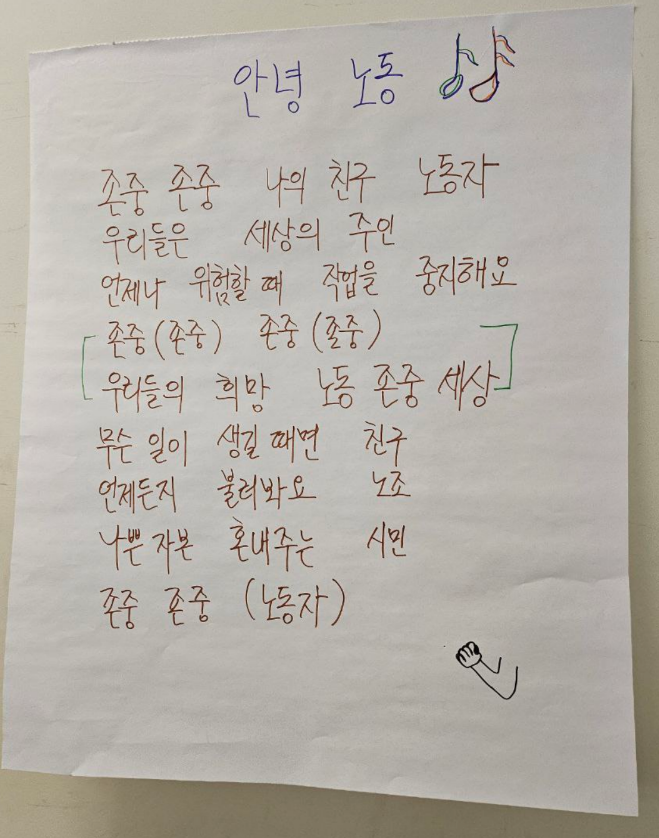 안녕 노동
존중 존중 나의 친구 노동자
우리들은 세상의 주인
언제나 위험할 때 작업을 중지해요
존중(존중) 존중(존중)
우리들의 희망 노동 존중 세상
무슨 일이 생길 때면 친구
언제든지 불러봐요 노조
나쁜 자본 혼내주는 시민
존중 존중 (노동자)